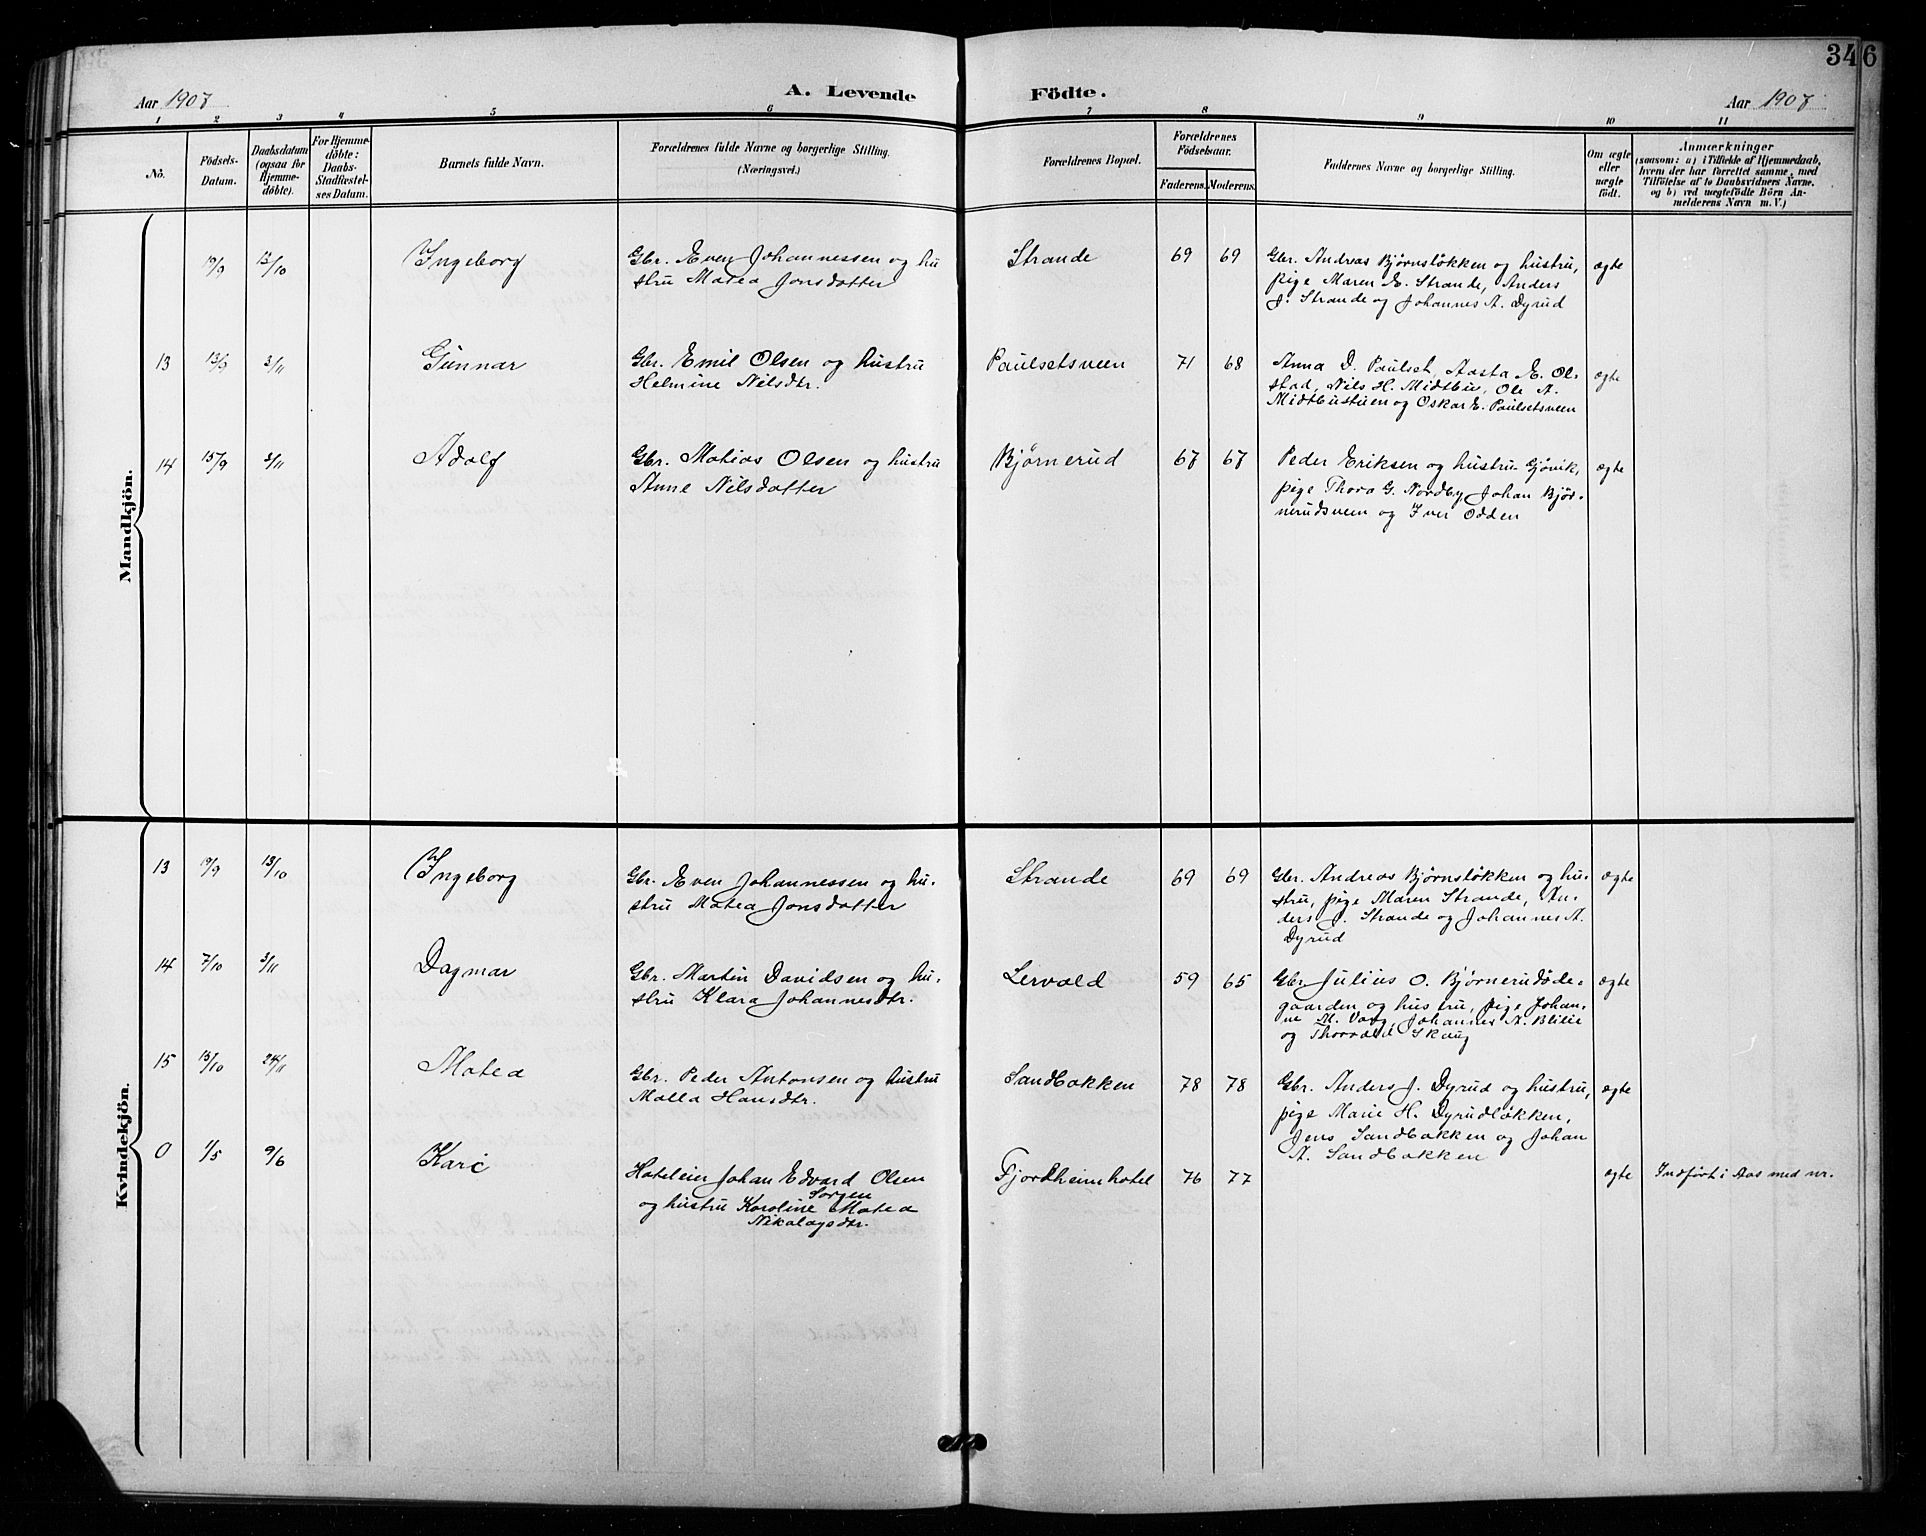 346
Aar 1907
A. Levende Födte.
Aar 1907
1 2 3 4 5 6 7 8 9 10 11
No.
Födsels-
Datum.
Daabsdatum
(ogsaa for
Hjemme-
döbte).
For Hjemme-
döbte:
Daabs-
Stadfæstel-
ses Datum.
Barnets fulde Navn.
Forældrenes fulde Navne og borgerlige Stilling.
(Næringsvei.)
Forældrenes Bopæl.
Forældrenes
Födselsaar.
Faderens. Moderens.
Faddernes Navne og borgerlige Stilling.
Om ægte
eller
uægte
födt.
Anmærkninger
(saasom: a) i Tilfælde af Hjemmedaab,
hvem der har forrettet samme, med
Tilföielse af to Daabsvidners Navne,
og b) ved uægtefödte Börn An-
melderens Navn m. V.)
Mandkjön.
19/9 13/10 Ingeborg Gbr. Even Johannessen og hu
stru Matea Jonsdatter
Strande 69 69 Gbr. Andreas Bjørnsløkken og hustru,
pige Maren E. Strande, Anders
J. Strande og Johannes A. Dyrud
ægte
13 13/9 3/11 Gunnar Gbr. Emil Olsen og hustru
Helmine Nilsdtr.
Paulsetsveen 71 68 Anna D. Paulset, Aasta E. Ol-
stad, Nils H. Midtbu, Ole A.
Midtbustuen og Oskar E. Paulsetsveen
ægte
14 15/9 3/11 Adolf Gbr. Matias Olsen og hustru
Anne Nilsdatter
Bjørnerud 67 67 Peder Eriksen og hustru Gjøvik,
pige Thora G. Nordby, Johan Bjør-
nerudsveen og Iver Odden
ægte
Kvindekjön.
13 19/9 13/10 Ingeborg Gbr. Even Johannessen og hu-
stru Matea Jonsdatter
Strande 69 69 Gbr. Andreas Bjørnsløkken og hu-
stru, pige Maren Strande, An-
ders J. Strande og Johannes A.
Dyrud
ægte
14 7/10 3/11 Dagmar Gbr. Martin Davidsen og hu-
stru Klara Johannesdtr.
Lervald 59 65 Gbr. Julius O. Bjørnerudøde-
gaarden og hustru, pige Johan-
ne M. Varg, Johannes A. Blilie
og Thorvald Skaug
ægte
15 13/10 24/11 Matea Gbr. Peder Antonsen og hustru
Malla Hansdtr.
Sandbakken 78 78 Gbr. Anders J. Dyrud og hustru,
pige Marie H. Dyrudløkken,
Jens Sandbakken og Johan
A. Sandbakken
ægte
0 1/5 9/6 Kari Hoteleier Johan Edvard Olsen
Sorgen
og hustru Karoline Matea
Nikolaysdtr.
Fjordheim hotel 76 77
ægte Indført i Aas med nr.